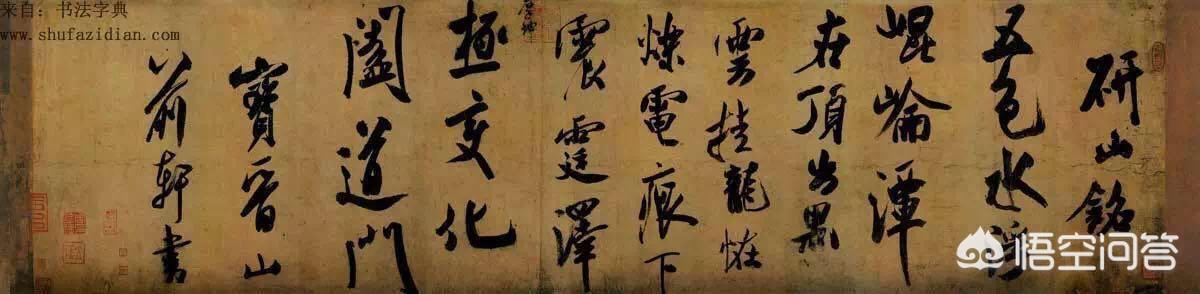 来自：书法字典
www.shufazidian.com
研山銘
五色水浮
崐崘潭
在頂出黑
雲挂龍恠
爍電痕下
震霆澤
厚坤
極变化
闔道門
寶晉山
前軒書
悟空问答